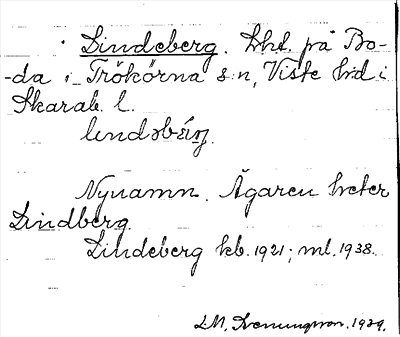 Lindeberg. Lht. på Bo-
-da i Trökörna s:n, Viste hd i
Skarab. l.
lındəbærj.
Nynamn. Ägaren heter
Lindberg.
Lindeberg kb. 1921; ml. 1938.
L.M. Svenungsson. 1929.